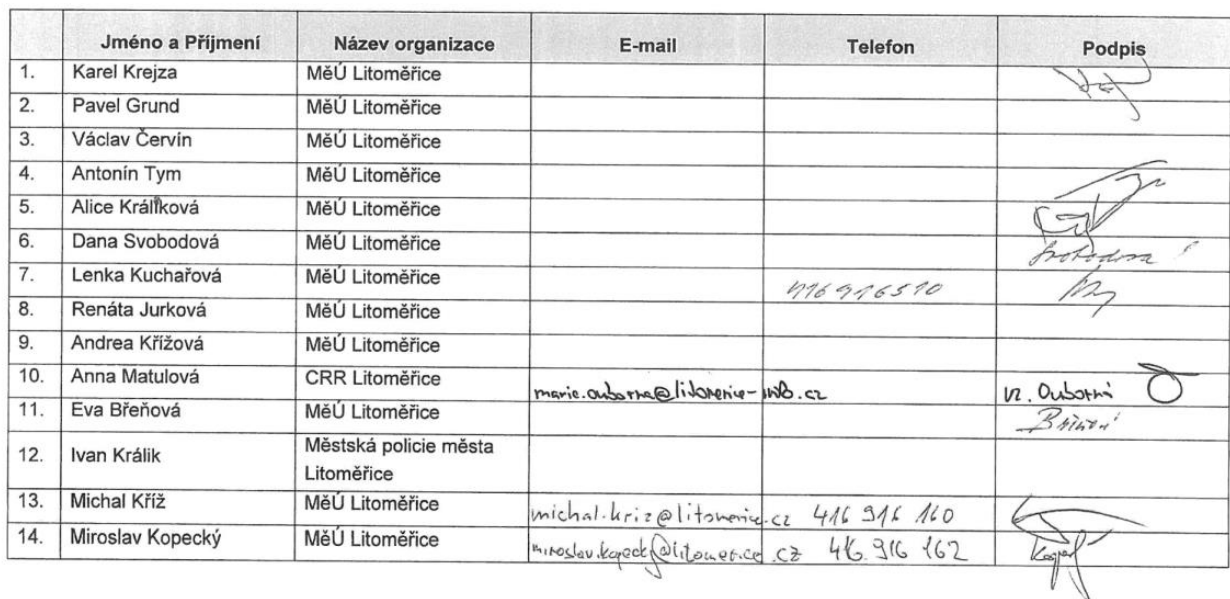 Jméno a Příjmení Název organizace E-mail Telefon Podpis
1. Karel Krejza MěÚ Litoměřice
2. Pavel Grund MěÚ Litoměřice
3. Václav Červín MěÚ Litoměřice
4. Antonín Tym MěÚ Litoměřice
5. Alice Králíková MěÚ Litoměřice
6. Dana Svobodová MěÚ Litoměřice Svobodová
7. Lenka Kuchařová MěÚ Litoměřice 416916510
8. Renáta Jurková MěÚ Litoměřice
9. Andrea Křížová MěÚ Litoměřice
10. Anna Matulová CRR Litoměřice vz.
11. Eva Břeňová MěÚ Litoměřice
12. Ivan Králik Městská policie města
Litoměřice
13. Michal Kříž MěÚ Litoměřice michal.kriz@litomerice.cz 416 916 160
14. Miroslav Kopecký MěÚ Litoměřice miroslav.kopecky@litomerice.cz 416 916 162